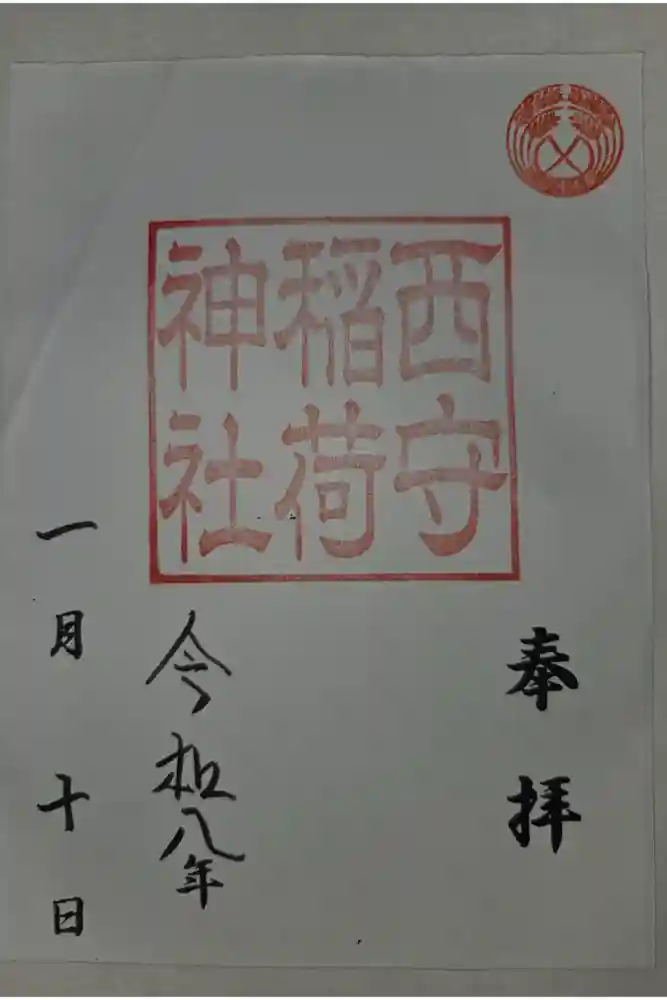 奉拝
西守
稲荷
神社
令和八年
一月十日